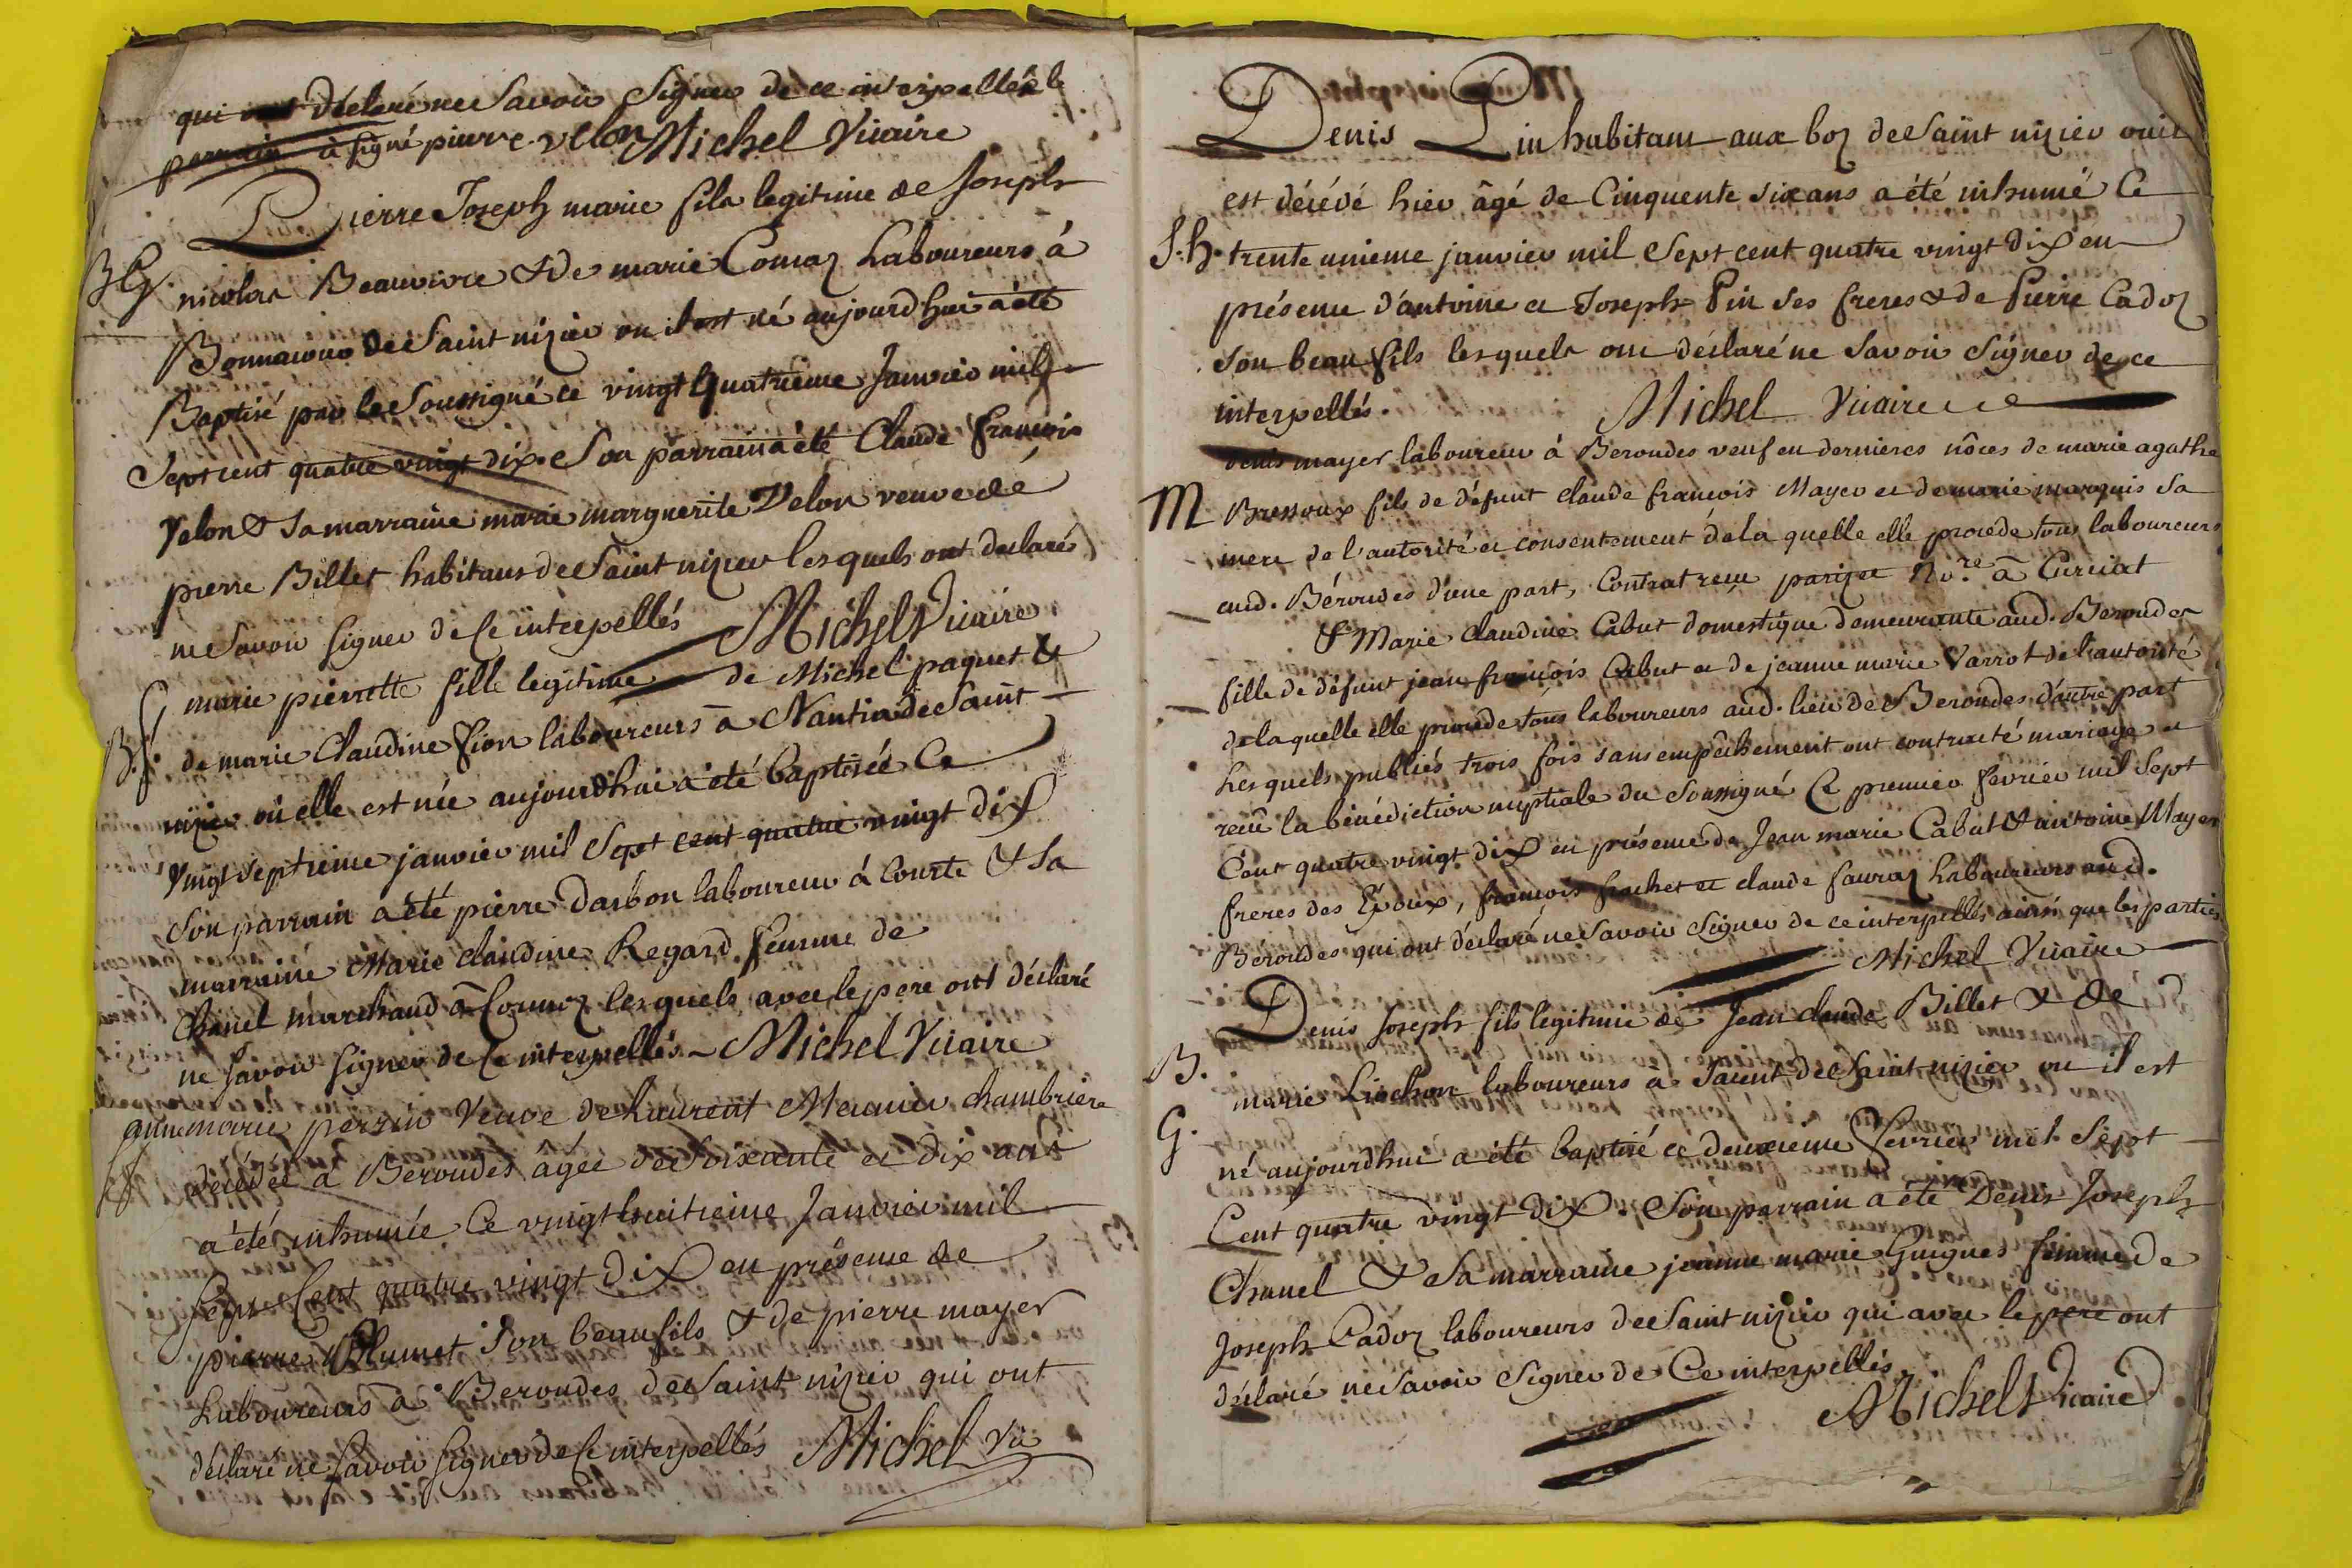 qui déclaré ne Savoir Signer de ce interpellés le
parrain a signé pierre velon Michel Vicaire
Pierre Joseph marie fils legitime de Joseph
BG. nicolas Beauvivre & de marie Comaz Laboureurs à
Bonnavour de Saint nizier ou il est né aujourd'huï a été
Baptisé par le Soussigné ce vingt quatrieme Janvier mil
Sept cent quatre vingt dix. Son parrain a été Claude François
Velon & Sa marraine marie marguerite Velon veuve de
pierre Billet habitans de Saint nizier lesquels ont declarés
ne Savoir Signer de Ce interpellés Michel Vicaire
marie pierrette fille legitime de Michel paquet &
B.f. de marie Claudine Pion laboureurs à Nantia de Saint
nizier où elle est née aujourd'hui a été baptisée Ce
vingt Septieme janvier mil Sept cent quatre vingt dix
Son parrain a été pierre Darbon laboureur à Courte & Sa
marraine Marie claudine Regard femme de
Chanel marchand à Cormoz lesquels avec le pere ont déclaré
ne Savoir Signer de Ce interpellés - Michel Vicaire
anne marie perrin Veuve de Laurent Mercier chambriere
décédée à Beroudes âgée de Soixante et dix ans
a été inhumée Ce vingt huitieme Janvier mil
Sept Cent quatre vingt dix en présence de
pierre Plumet Son beau fils & de pierre mayer
Laboureurs à Beroudes de Saint nizier qui ont
déclaré ne Savoir Signer de Ce interpellés Michel Vic
Denis Pin habitant aux boz de Saint nizier ou il
est décédé hier âgé de Cinquente six ans a été inhumé Ce
S.h. trente unieme janvier mil Sept cent quatre vingt dix en
présence d'antoine et Joseph Pin Ses freres & de Pierre Cadoz
Son beau fils lesquels ont déclaré ne Savoir Signer de ce
interpellés. Michel Vicaire
Denis mayer laboureur à Beroudes veuf en dernieres nôces de marie agathe
M Bressoux fils de défunt claude françois Mayer et de marie marquis Sa
mere de l'autorité et consentement de la quelle elle procede tous laboureurs
aud. Béroudes d'une part, Contrat reçu parizet No.re à Curciat
& Marie Claudine Cabut domestique demeurante aud. Beroudes
fille de défunt jean françois Cabut et de jeanne marie Varrot de l'autorité
de laquelle elle procede tous laboureurs aud. lieu de Beroudes d'autre part
Lesquels publiés trois fois sans empêchement ont contracté mariage et
reçu la bénédiction nuptiale du Soussigné Ce premier fevrier mil Sept
Cent quatre vingt dix en présence de Jean marie Cabut & antoine Mayer
freres des Epoux, françois frachet et claude fauraz Laboureurs aud.
Beroudes qui ont déclaré ne Savoir Signer de ce interpellés ainsi que les parties
Michel Vicaire
Denis Joseph fils legitime de Jean claude Billet & de
B. marie Liochon laboureurs à de Saint nizier ou il est
G. né aujourd'hui a été baptisé ce deuxieme Fevrier mil Sept
Cent quatre vingt dix. Son parrain a été Denis Joseph
Chanel & Sa marraine jeanne marie Guigues femme de
Joseph Cadoz laboureurs de Saint nizier qui avec le pere ont
déclaré ne Savoir Signer de Ce interpellés
Michel Vicaire